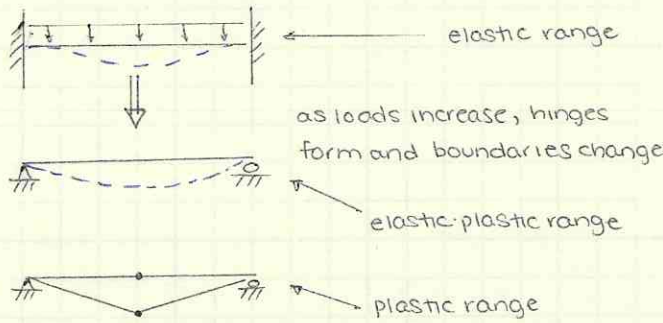 elastic range
as loads increase, hinges
form and boundaries change
elastic-plastic range
plastic range